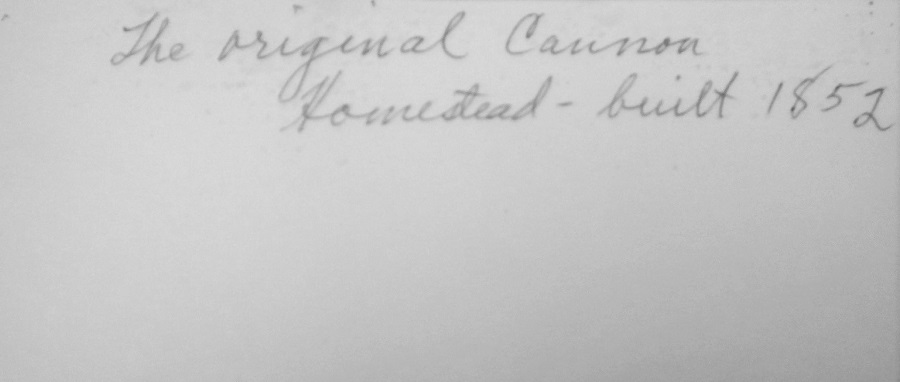 The original Cannon
Homestead - built 1852